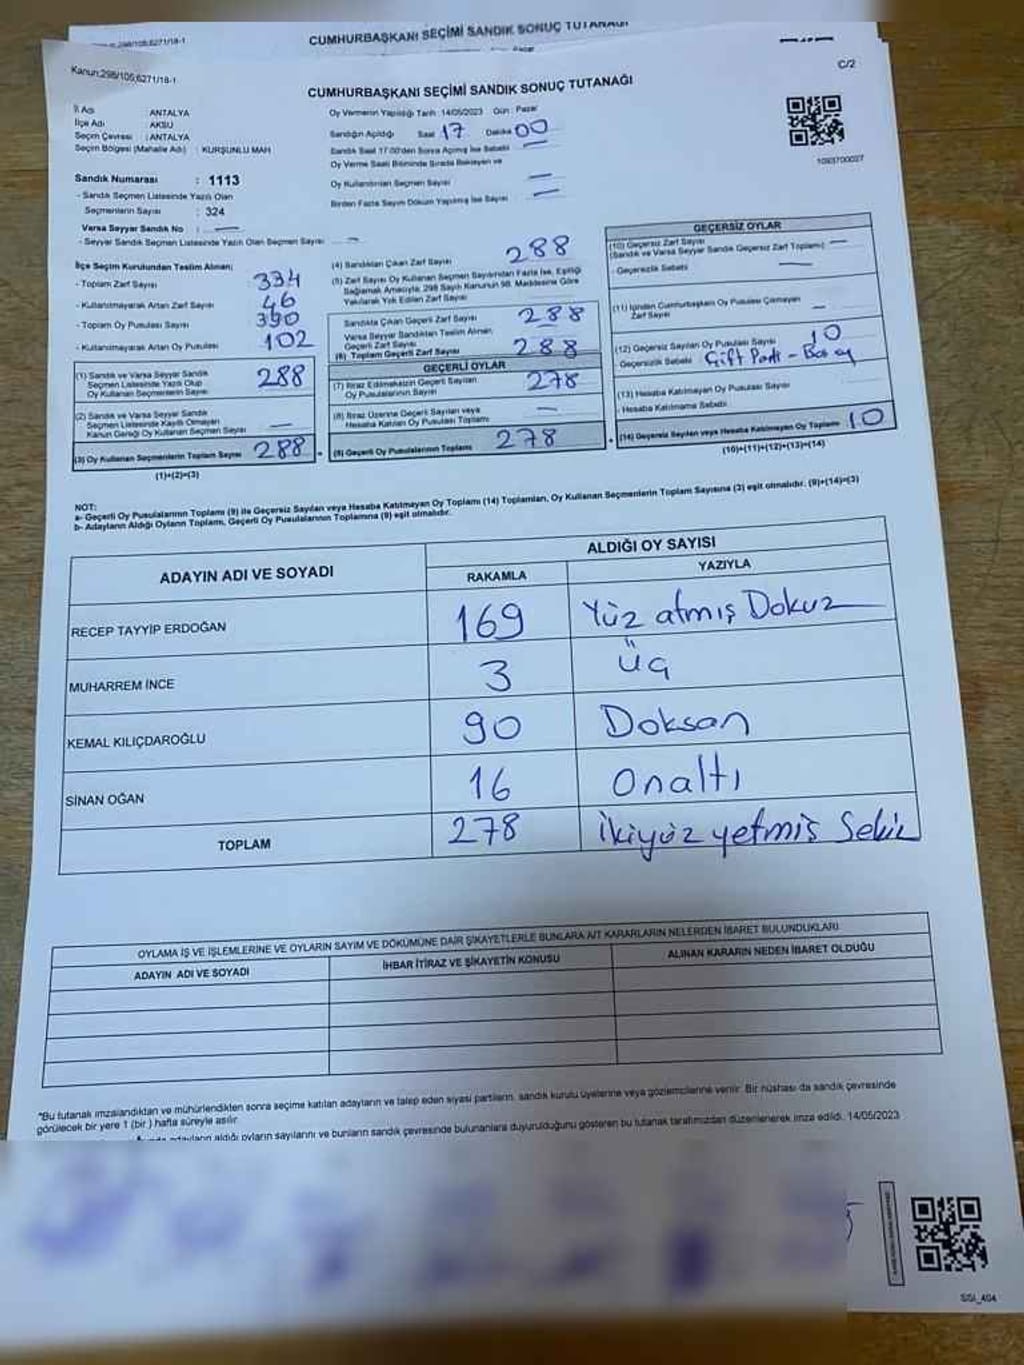 CUMHURBAŞKANI SEÇİMİ SANDIK SONUÇ TUTANAĞI
Kanun:298/105;6271/18-1
C/2
CUMHURBAŞKANI SEÇİMİ SANDIK SONUÇ TUTANAĞI
İl Adı : ANTALYA
İlçe Adı : AKSU
Seçim Çevresi : ANTALYA
Seçim Bölgesi (Mahalle Adı) : KURŞUNLU MAH
Oy Vermenin Yapıldığı Tarih :14/05/2023 Gün : Pazar
Sandığın Açıldığı Saat 17 Dakika 00
Sandık Saat 17:00'den Sonra Açılmış İse Sebebi —
Oy Verme Saati Bitiminde Sırada Bekleyen ve
Oy Kullandırılan Seçmen Sayısı —
Birden Fazla Sayım Döküm Yapılmış İse Sayısı —
1093700027
Sandık Numarası : 1113
- Sandık Seçmen Listesinde Yazılı Olan
Seçmenlerin Sayısı : 324
Varsa Seyyar Sandık No : —
- Seyyar Sandık Seçmen Listesinde Yazılı Olan Seçmen Sayısı —
İlçe Seçim Kurulundan Teslim Alınan;
- Toplam Zarf Sayısı 334
- Kullanılmayarak Artan Zarf Sayısı 46
- Toplam Oy Pusulası Sayısı 390
- Kullanılmayarak Artan Oy Pusulası 102
(1) Sandık ve Varsa Seyyar Sandık
Seçmen Listesinde Yazılı Olup
Oy Kullanan Seçmenlerin Sayısı 288
(2) Sandık ve Varsa Seyyar Sandık
Seçmen Listesinde Kayıtlı Olmayan
Kanun Gereği Oy Kullanan Seçmen Sayısı —
(3) Oy Kullanan Seçmenlerin Toplam Sayısı 288
(1)+(2)=(3)
(4) Sandıktan Çıkan Zarf Sayısı 288
(5) Zarf Sayısı Oy Kullanan Seçmen Sayısından Fazla İse, Eşitliği
Sağlamak Amacıyla; 298 Sayılı Kanunun 98. Maddesine Göre
Yakılarak Yok Edilen Zarf Sayısı
Sandıkta Çıkan Geçerli Zarf Sayısı 288
Varsa Seyyar Sandıktan Teslim Alınan
Geçerli Zarf Sayısı —
(6) Toplam Geçerli Zarf Sayısı 288
GEÇERLİ OYLAR
(7) İtiraz Edilmeksizin Geçerli Sayılan
Oy Pusulalarının Sayısı 278
(8) İtiraz Üzerine Geçerli Sayılan veya
Hesaba Katılan Oy Pusulası Toplamı —
(9) Geçerli Oy Pusulalarının Toplamı 278
GEÇERSİZ OYLAR
(10) Geçersiz Zarf Sayısı
(Sandık ve Varsa Seyyar Sandık Geçersiz Zarf Toplamı) —
- Geçersizlik Sebebi —
(11) İçinden Cumhurbaşkanı Oy Pusulası Çıkmayan
Zarf Sayısı —
(12) Geçersiz Sayılan Oy Pusulası Sayısı 10
Geçersizlik Sebebi Çift Parti - Boş oy
(13) Hesaba Katılmayan Oy Pusulası Sayısı
- Hesaba Katılmama Sebebi
(14) Geçersiz Sayılan veya Hesaba Katılmayan Oy Toplamı 10
(10)+(11)+(12)+(13)=(14)
NOT:
a- Geçerli Oy Pusulalarının Toplamı (9) ile Geçersiz Sayılan veya Hesaba Katılmayan Oy Toplamı (14) Toplamları, Oy Kullanan Seçmenlerin Toplam Sayısına (3) eşit olmalıdır. (9)+(14)=(3)
b- Adayların Aldığı Oyların Toplamı, Geçerli Oy Pusulalarının Toplamına (9) eşit olmalıdır.
ADAYIN ADI VE SOYADI
ALDIĞI OY SAYISI
RAKAMLA YAZIYLA
RECEP TAYYİP ERDOĞAN 169 Yüz atmış Dokuz
MUHARREM İNCE 3 Üç
KEMAL KILIÇDAROĞLU 90 Doksan
SİNAN OĞAN 16 Onaltı
TOPLAM 278 İkiyüz yetmiş Sekiz
OYLAMA İŞ VE İŞLEMLERİNE VE OYLARIN SAYIM VE DÖKÜMÜNE DAİR ŞİKAYETLERLE BUNLARA AİT KARARLARIN NELERDEN İBARET BULUNDUKLARI
ADAYIN ADI VE SOYADI
İHBAR İTİRAZ VE ŞİKAYETİN KONUSU
ALINAN KARARIN NEDEN İBARET OLDUĞU
"Bu tutanak imzalandıktan ve mühürlendikten sonra seçime katılan adayların ve talep eden siyasi partilerin, sandık kurulu üyelerine veya gözlemcilerine verilir. Bir nüshası da sandık çevresinde
görülecek bir yere 1 (bir ) hafta süreyle asılır.
adayların aldığı oyların sayılarını ve bunların sandık çevresinde bulunanlara duyurulduğunu gösteren bu tutanak tarafımızdan düzenlenerek imza edildi. 14/05/2023
SSI_404